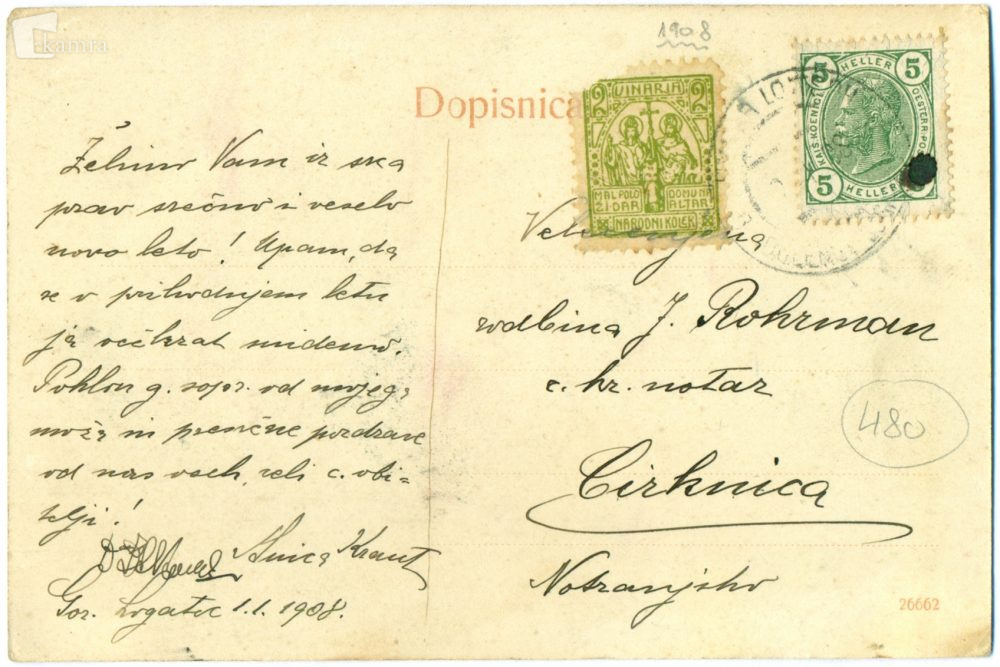 kamra
1908
Dopisnica
2 VINARJA 2
MAL POLO DOMU NA
ŽI DAR ALTAR
NARODNI KOLEK
5 HELLER 5
KAIS. KOENIGL. OESTERR. PO
5 HELLER
Želimo Vam iz srca
prav srečno i veselo
novo leto! Upam, da
se v prihodnjem letu
večkrat snidemo.
Poklon g. sopr. od mojega
moža in presrčne pozdrave
od nas vseh, celi c. obi-
telji!
Anica Kraut
Gor. Logatec 1.1. 1908.
rodbina J. Rohrman
c. kr. notar
Cirknica
Notranjsko
480
26662